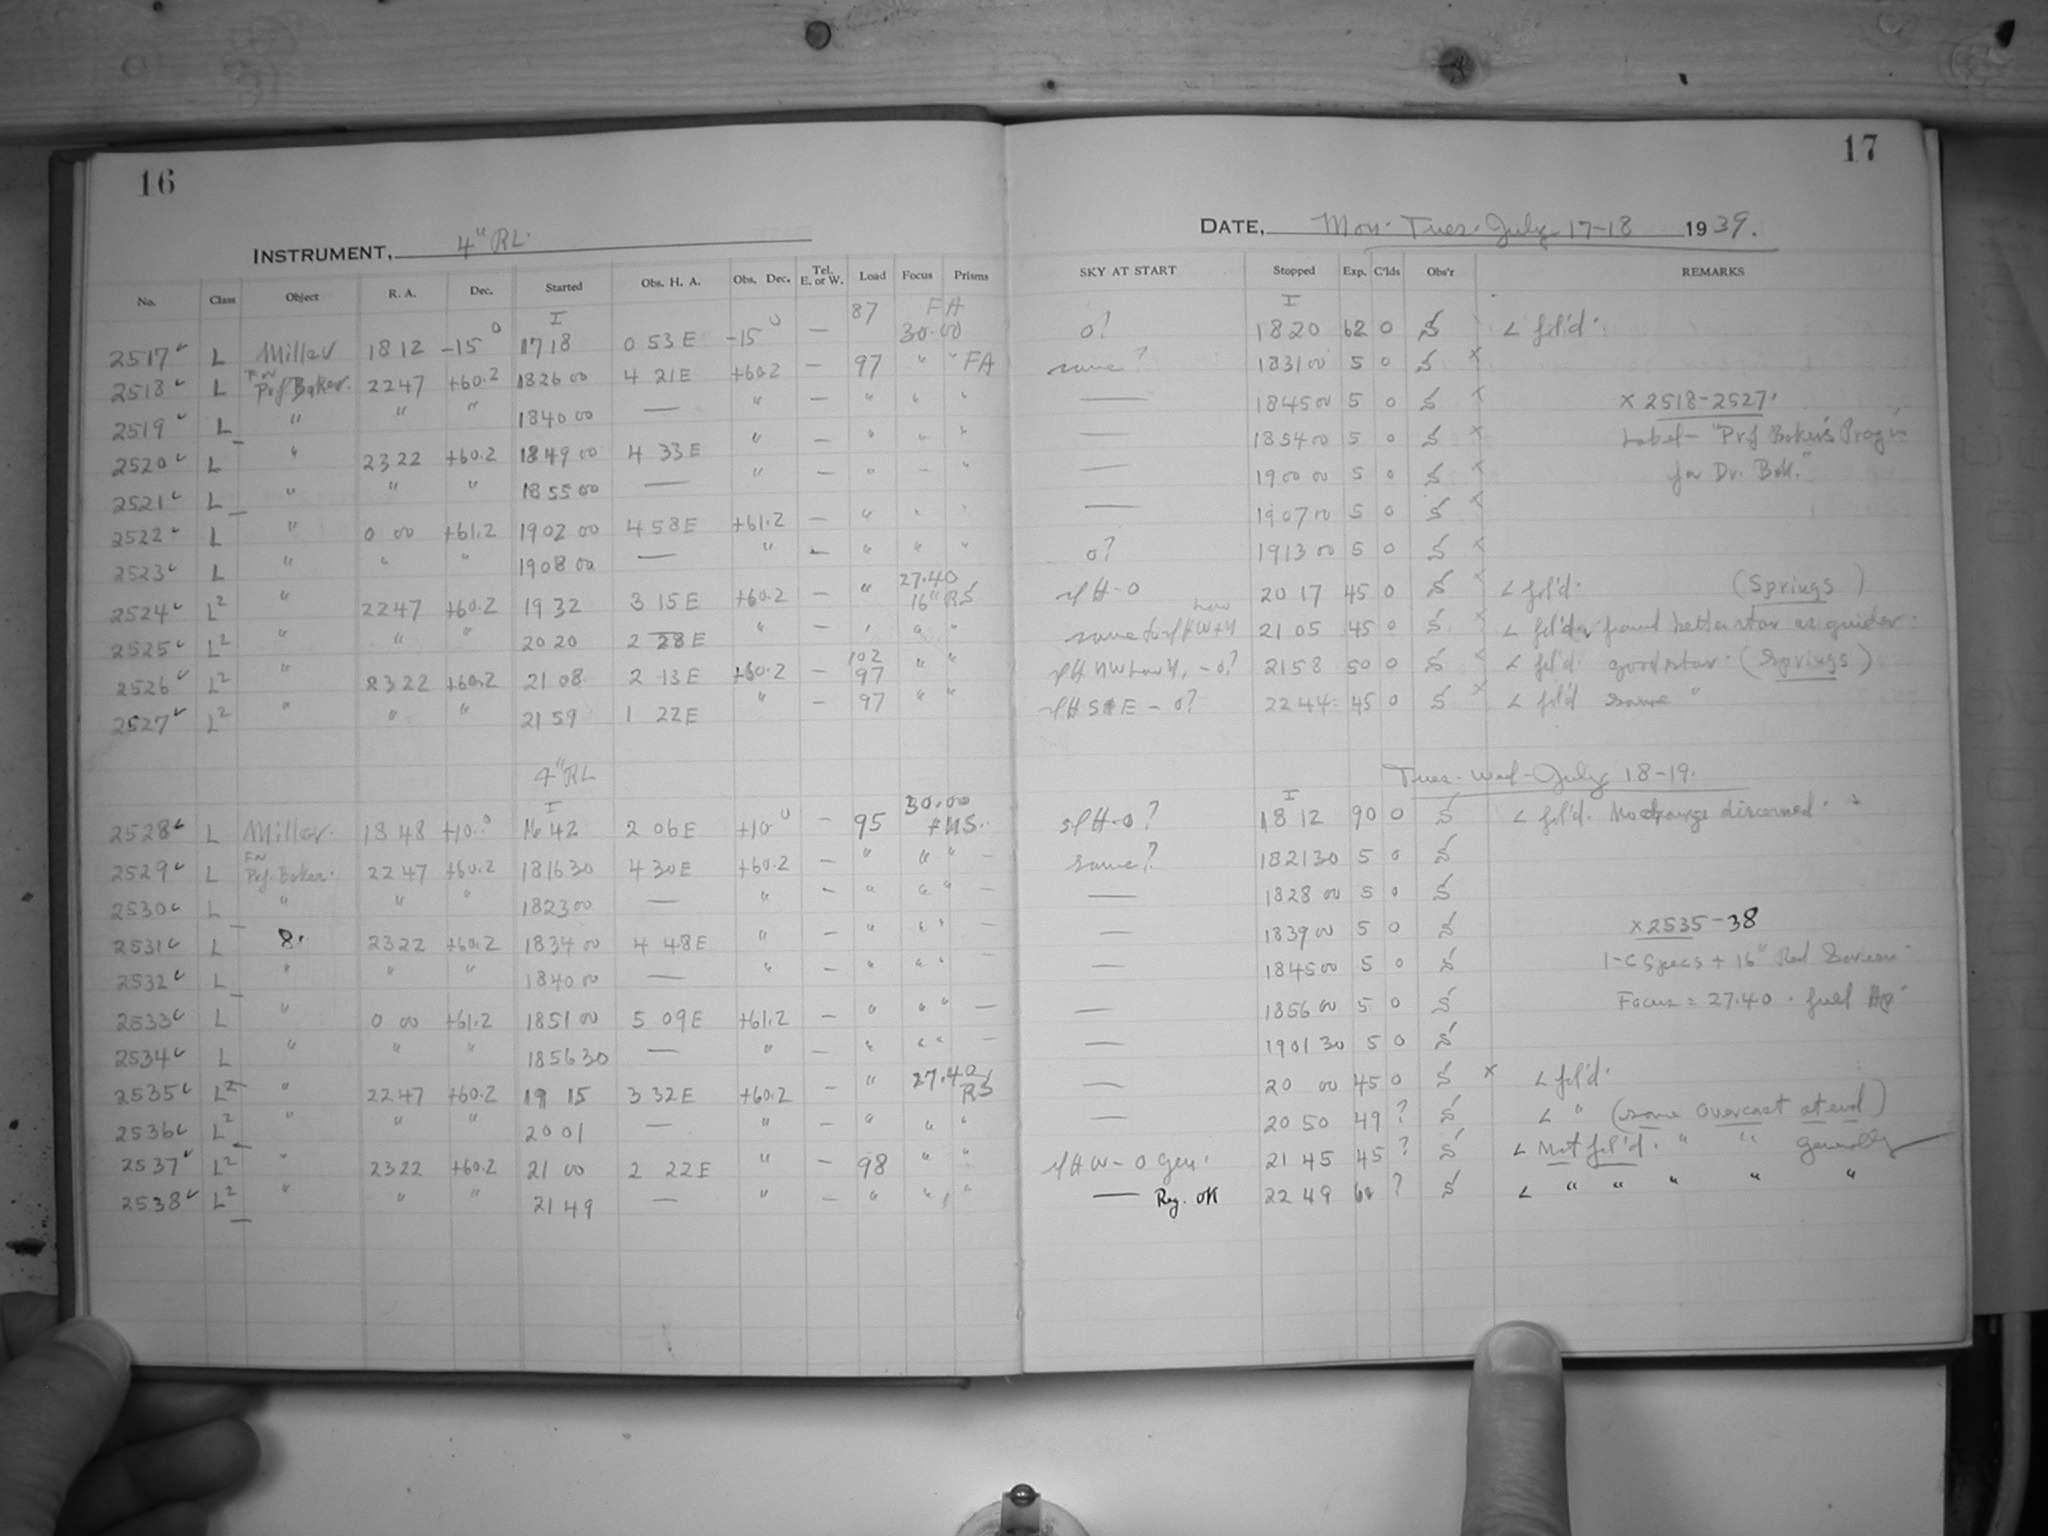 16
INSTRUMENT, 4" RL.
No. Class Object R. A. Dec. Started Obs. H. A. Obs. Dec. Tel. E. or W. Load Focus Prisms
I 87 FA
2517 L Miller 1812 -15° 1718 0 53 E -15° — 30.00
2518 L For Prf Baker. 2247 +60.2 1826 00 4 21 E +60.2 — 97 " " FA
2519 L " " " 1840 00 — " — " " "
2520 L " 2322 +60.2 1849 00 4 33 E " — " " "
2521 L " " " 1855 00 — " — " - "
2522 L " 0 00 +61.2 1902 00 4 58 E +61.2 — " " "
2523 L " " " 1908 00 — " — " " "
2524 L² " 2247 +60.2 1932 3 15 E +60.2 — " 27.40 16" RS
2525 L² " " " 2020 2 28 E " — " " "
2526 L² " 2322 +60.2 2108 2 13 E +60.2 — 102 97 " "
2527 L² " " " 2159 1 22 E " — 97 " "
4" RL
I
2528 L Miller. 1848 +10.° 1642 2 06 E +10.° — 95 30.00
2529 L For Prf. Baker. 2247 +60.2 1816 30 4 30 E +60.2 — " " " —
2530 L " " " 1823 00 — " — " " " —
2531 L 2322 +60.2 1834 00 4 48 E " — " " —
2532 L " " " 1840 00 — " — " " " —
2533 L " 0 00 +61.2 1851 00 5 09 E +61.2 — " " " —
2534 L " " " 1856 30 — " — " " " —
2535 L² " 2247 +60.2 19 15 3 32 E +60.2 — " 27.40 RS
2536 L² " " " 2001 — " — " " "
2537 L² " 2322 +60.2 21 00 2 22 E " — 98 " "
2538 L² " " " 2149 — " — " " "
17
DATE, Mon. Tues. July 17-18 1939.
SKY AT START Stopped Exp. C'lds Obs'r REMARKS
I
0? 1820 62 0 S ∠ fol'd.
same? 1831 00 5 0 S x
— 1845 00 5 0 S x x 2518-2527.
— 1854 00 5 0 S x Label - "Prf Baker's Prog'm
— 1900 00 5 0 S x for Dr. Bok."
— 1907 00 5 0 S x
0? 1913 00 5 0 S x
H-0 2017 45 0 S x ∠ fol'd. (Springs)
same 2105 45 0 S x ∠ fol'd found better star as guider.
2158 50 0 S x ∠ fol'd. good star. (Springs)
E - 0? 2244 45 0 S x ∠ fol'd same "
Tues. Wed - July 18-19.
I
H-0? 1812 90 0 S ∠ fol'd. No change discerned.
same? 1821 30 5 0 S
— 1828 00 5 0 S
— 1839 00 5 0 S x 2535-38
— 1845 00 5 0 S 1-C Specs + 16" Red Screen
— 1856 00 5 0 S Focus = 27.40. full Ap
— 1901 30 5 0 S
— 20 00 45 0 S x ∠ fol'd.
— 20 50 49 ? S ∠ " (some overcast at end)
W - 0 Gen. 21 45 45 ? S ∠ Not fol'd. " " generally
— Reg. OK 22 49 60 ? S ∠ " " " " "